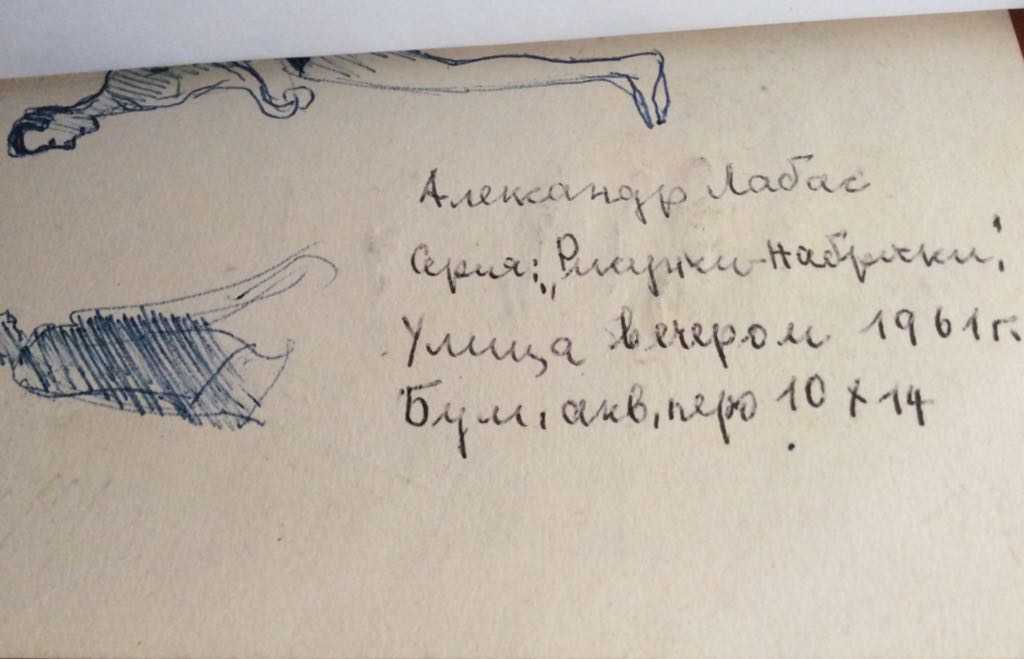 Александр Лабас
Серия: „Рисунки-Наброски".
Улица вечером 1961 г.
Бум, акв, перо 10 х 14